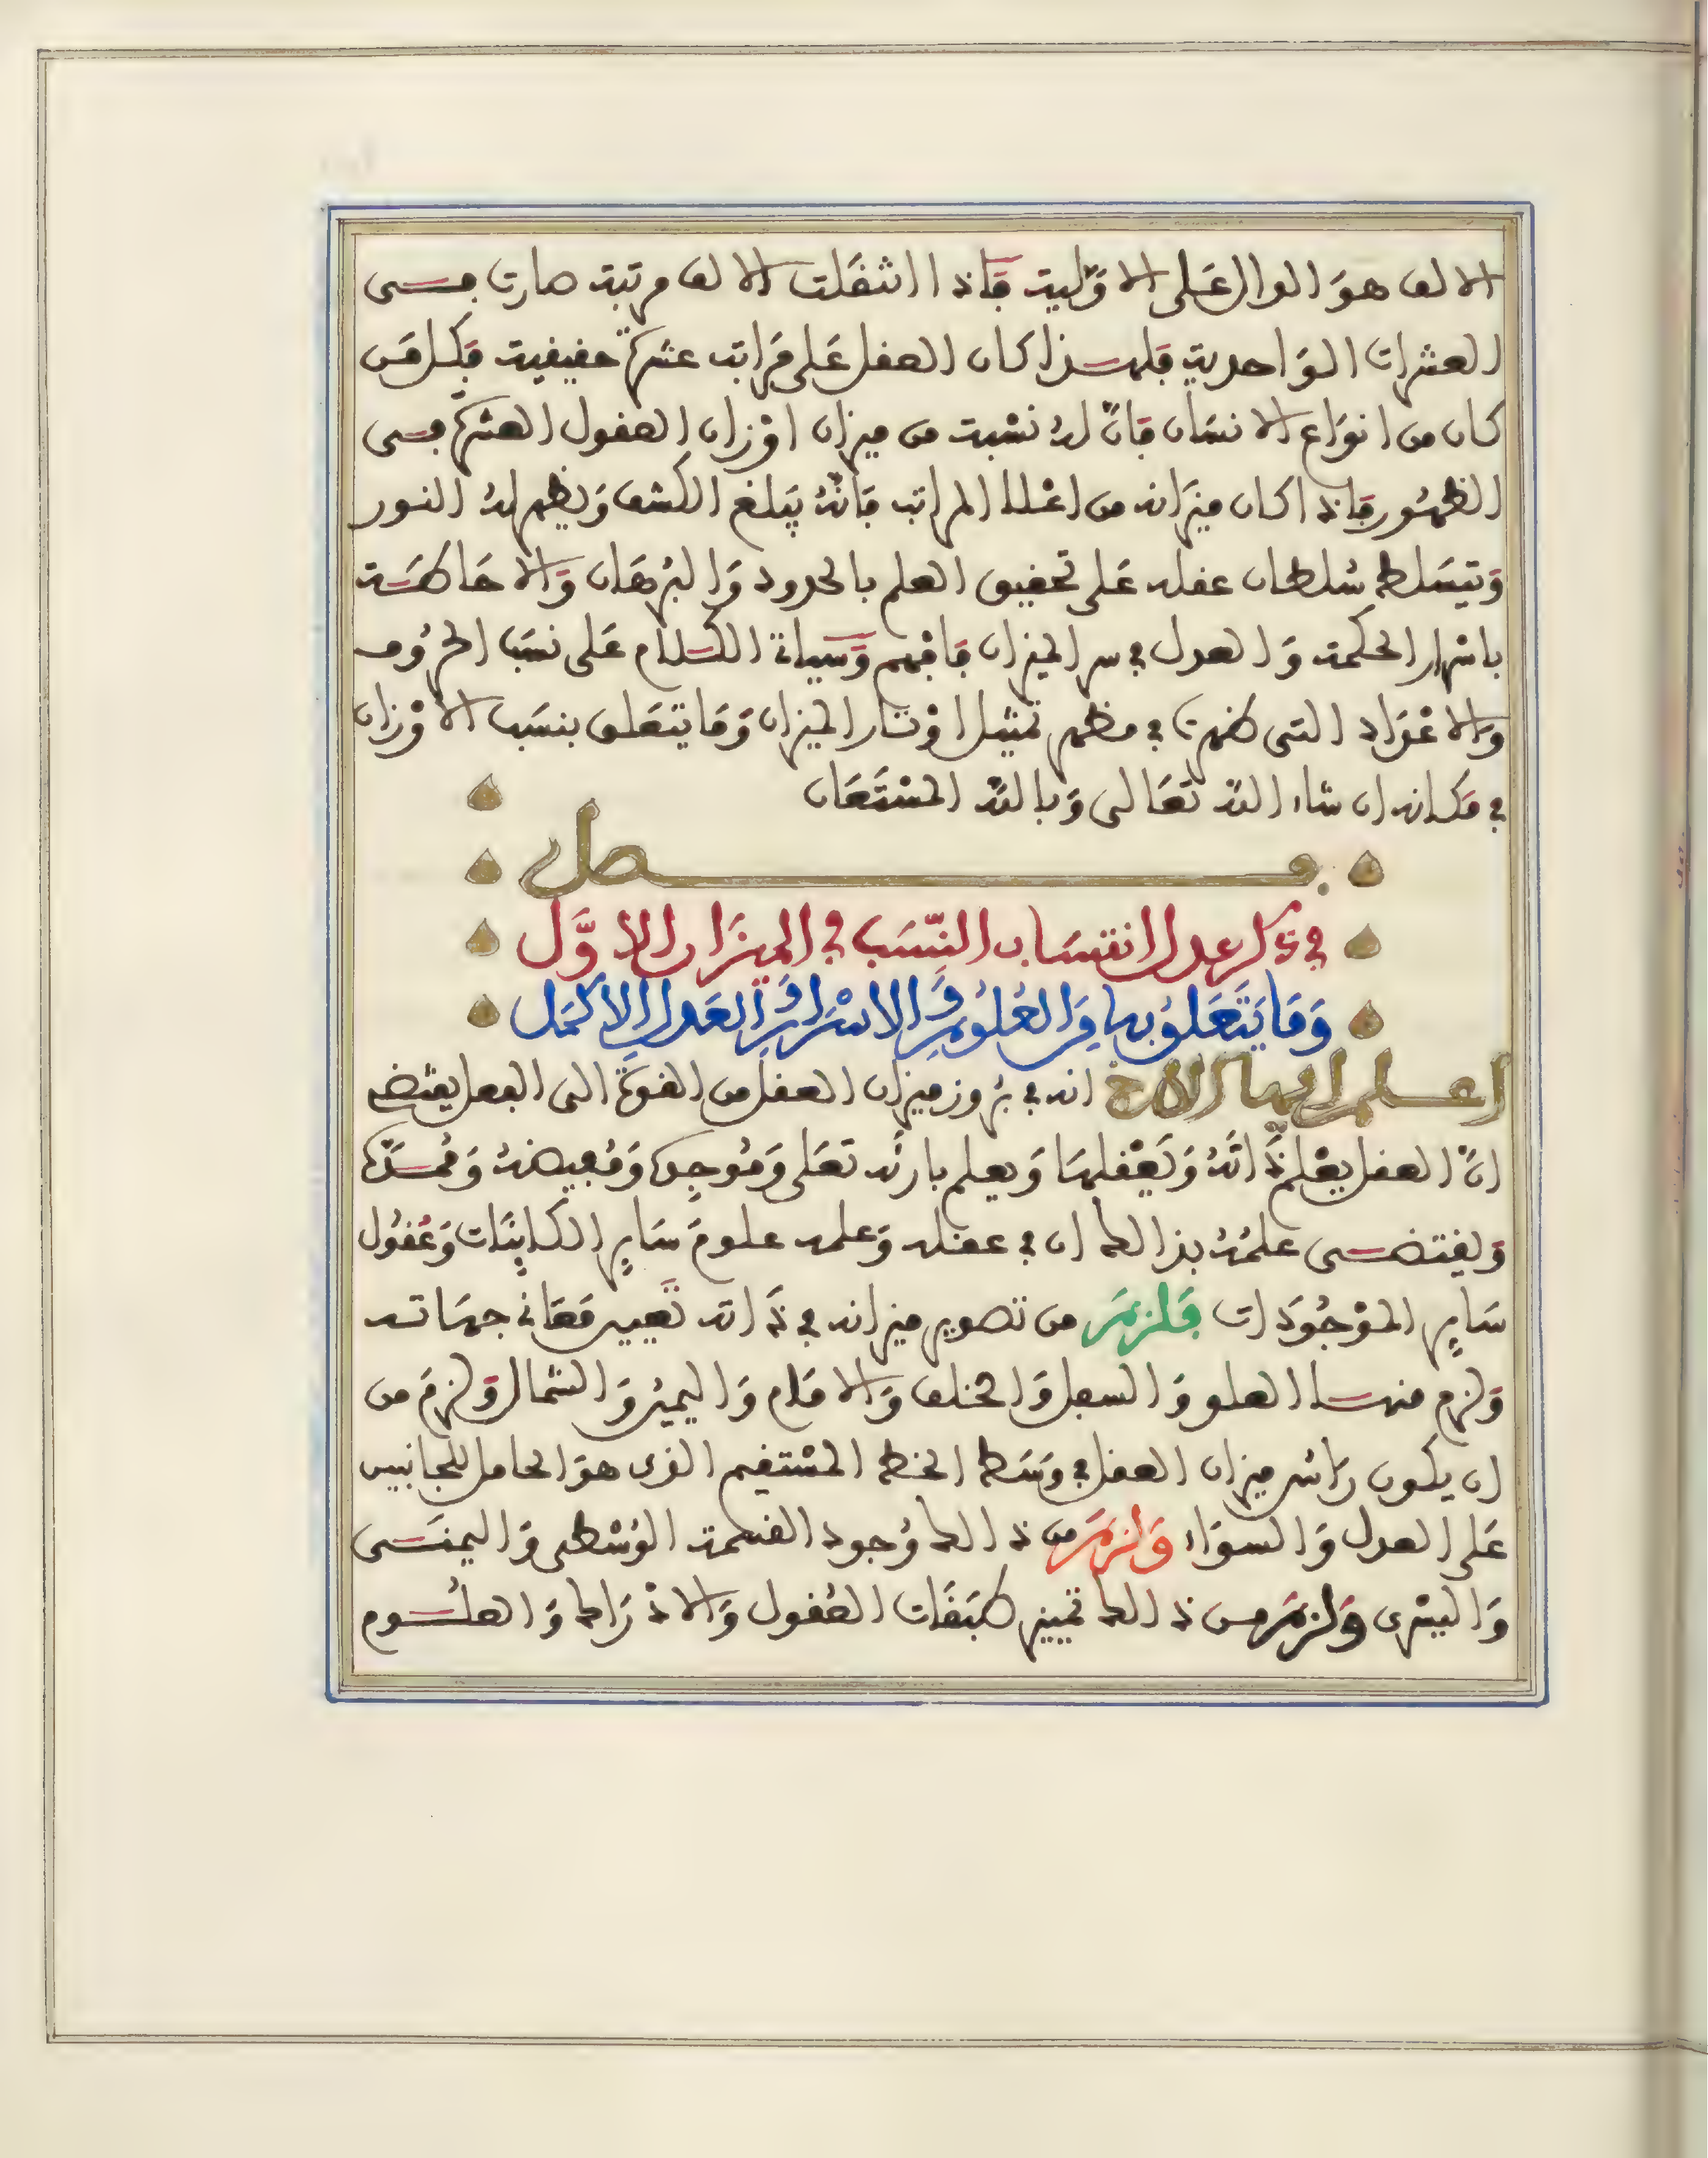 الالف هوَ الدال عَلى الاوَّلية فَاذا انتقَلت الالف مرتبة صارت فــى
العشرات الوَاحدية فلهــذا كان العقل عَلى مَراتب عشرة حقيقية فكل مَن
كان من انوَاع الانسَان فانّ لهُ نسْبة من ميزان اوْزان العقول العشرة فــى
الظهُور فاذا كان ميزَانه من اعْلا المراتب فانّهُ يبَلغ الكشف وَيظهر لهُ النور
وَيتسَلط سُلطان عقله عَلى تحقيق العلم بالحدود وَالبُرهَان وَالاحَاطــة
باسْرار الحكمة وَالعدل في سر الميزان فافْهم وَسياتي الكــلام عَلى نسَب الحرُوف
وَالاعْدَاد التى ظهرت في مظهر تمثيل اوْتار الميزان وَمَا يتعَلق بنسَب الاوْزان
في مَكـانه ان شاء اللّه تعَالى وَباللّه المسْتَعَان
فــــصل
في ذكر عدل انتسَاب النِّسَب في الميزَان الاوَّل
وَمَا يَتَعَلقُ بها مِنَ العُلوُمِ وَالاسْرَارِ وَالعَدلِ الاكمَل
اعــلم ايها الاخ انه في برُوز ميزان العقل من القوة الى الفعل يقتضى
انّ العقل يعْلم ذَاتَهُ وَيَعْقلهَا وَيعلم بارئه تعَلى وَمُوجدهُ وَمُفيضهُ وَمُمــدّهُ
وَيقتضــى علمُهُ بذالك ان في عقله وَعلمه علومَ سَايرِ الكاينَات وَعُقُول
سَايرِ الموْجُودَات فَلزمَ من تصوير ميزانه في ذَاته تعَيين مَعَاني جهَاتــه
وَلزم منهــا العلو وَالسفل وَالخلف وَالامَام وَاليمين وَالشمال وَلزمَ من
ان يكون رَاسُ ميزان العقل في وَسَط الخط المسْتقيم الذى هوَ الحامل للجانبين
عَلى العدل وَالسوَاء وَلزمَ من ذالك وُجود القسْمة الوُسْطى وَاليمنــى
وَاليسْرى وَلزمَ من ذالك تمييز طبَقَات العُقول وَالادْرَاك وَالعلــوم